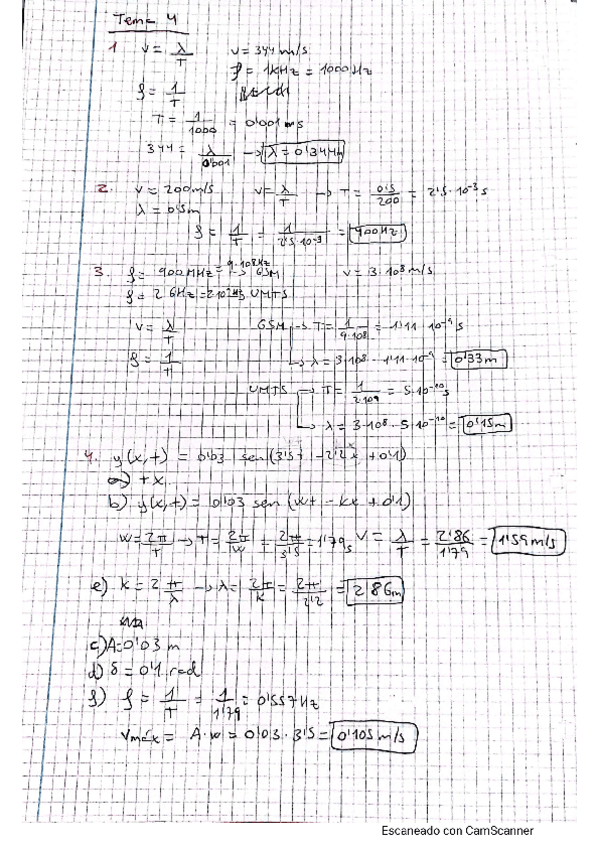 Tema 4
1 v = λ/T v = 344 m/s
f = 1KHz = 1000Hz
f = 1/T
T = 1/1000 = 0'001 ms
344 = λ/0'001 → λ = 0'344m
2. v = 200m/s v = λ/T → T = 0'5/200 = 2'5·10⁻³ s
λ = 0'5m
f = 1/T = 1/2'5·10⁻³ = 400Hz
3. f = 900MHz = 9·10⁸Hz → GSM v = 3·10⁸ m/s
f = 2 GHz = 2·10⁹Hz UMTS
v = λ/T GSM → T = 1/9·10⁸ = 1'11·10⁻⁹ s
f = 1/T → λ = 3·10⁸ · 1'11·10⁻⁹ = 0'33m
UMTS → T = 1/2·10⁹ = 5·10⁻¹⁰ s
→ λ = 3·10⁸ · 5·10⁻¹⁰ = 0'15m
4. y(x,t) = 0'03 sen(3'5t - 2'2x + 0'1)
a) +x
b) y(x,t) = 0'03 sen (wt - kx + 0'1)
w = 2π/T → T = 2π/w = 2π/3'5 = 1'79s v = λ/T = 2'86/1'79 = 1'59m/s
e) k = 2π/λ → λ = 2π/k = 2π/2'2 = 2'86m
c) A = 0'03 m
d) δ = 0'1 rad
f) f = 1/T = 1/1'79 = 0'557Hz
vmáx = A·w = 0'03·3'5 = 0'105 m/s
Escaneado con CamScanner